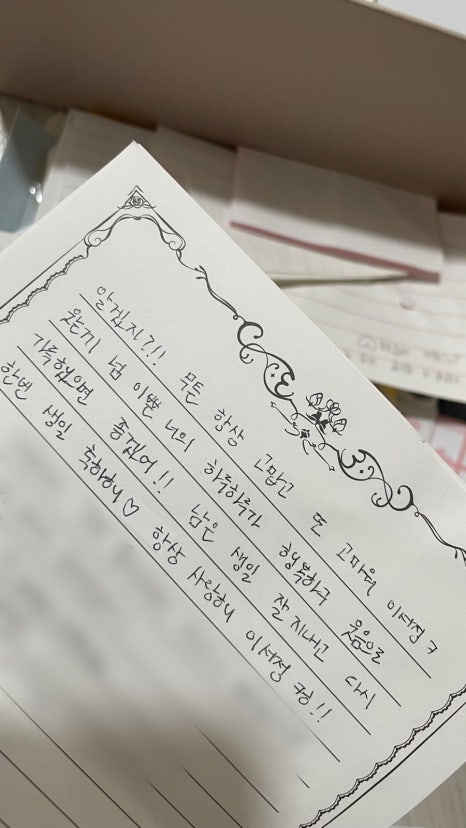 알겠지?!! 무튼 항상 고맙고 또 고마워 이서정 ㅋ
웃는게 넘 이쁜 너의 하루하루가 행복하구 웃음으로
가득했으면 좋겠어!! 남은 생일 잘 지내고 다시
한번 생일 축하해♡ 항상 사랑해 이서정 쿙!!